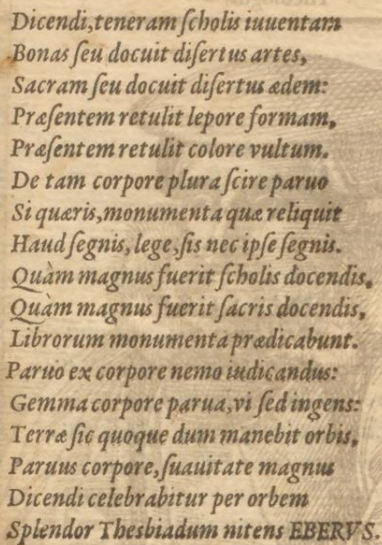 Dicendi, teneram ſcholis iuuentam
Bonas ſeu docuit diſertus artes,
Sacram ſeu docuit diſertus ædem:
Præſentem retulit lepore formam,
Præſentem retulit colore vultum.
De tam corpore plura ſcire paruo
Si quæris, monumenta quæ reliquit
Haud ſegnis, lege, ſis nec ipſe ſegnis.
Quàm magnus fuerit ſcholis docendis,
Quàm magnus fuerit ſacris docendis,
Librorum monumenta prædicabunt.
Paruo ex corpore nemo iudicandus:
Gemma corpore parua, vi ſed ingens:
Terræ ſic quoque dum manebit orbis,
Paruus corpore, ſuauitate magnus
Dicendi celebrabitur per orbem
Splendor Thesbiadum nitens EBERVS.